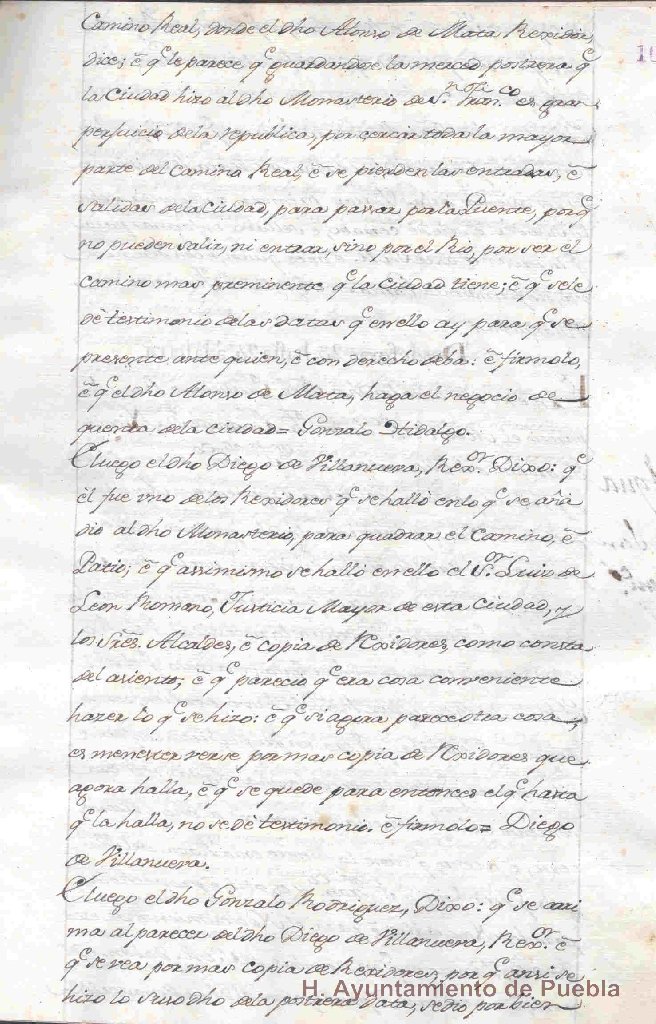 Camino Real, donde el dho Alonso de Mata Rexidor,
dice; ē q̃ le parece q̃ guardandose la merced postrera q̃
la Ciudad hizo al dho Monasterio de Sn. Franco. es gran
perjuicio dela republica, por cercar toda la mayor
parte del camino Real, ē se pierden las entradas, ē
salidas dela Ciudad, para passar por la Puente, por q̃
no pueden salir, ni entrar, sino por el Rio, por ser el
camino mas preminente q̃ la Ciudad tiene; ē q̃ sele
dè testimonio delas datas q̃ en ello ay para q̃ se
presente ante quien, ē con derecho deba: ē firmolo,
ē q̃ el dho Alonso de Mata, haga el negocio de
quenta dela Ciudad= Gonzalo Hidalgo.
E luego el dho Diego de Villanueva, Rexor. Dixo: q̃
èl fue vno delos Rexidores q̃ se hallò en lo q̃ se aña
dio al dho Monasterio, para quadrar el Camino, ē
Patio; ē q̃ assimimo se hallò en ello el Sor. Luis de
Leon Romano, Justicia Mayor de esta Ciudad, y
los Sres. Alcaldes, ē copia de Rexidores, como consta
del asiento; ē q̃ parecio q̃ era cosa conveniente
hazer lo q̃ se hizo: ē q̃ si agora parece otra cosa,
es menester verse por mas copia de Rexidores que
agora halla, ē q̃ se quede para entonces el q̃ hasta
q̃ la halla, no se dè testimonio. ē firmolo= Diego
de Villanueva.
E luego el dho Gonzalo Rodriguez, Dixo: q̃ se arri
ma al parecer del dho Diego de Villanueva, Rexor. ē
q̃ se vea por mas copia de Rexidores, por q̃ ansi se
hizo lo suso dho dela postrera data, se dio por bien
H. Ayuntamiento de Puebla